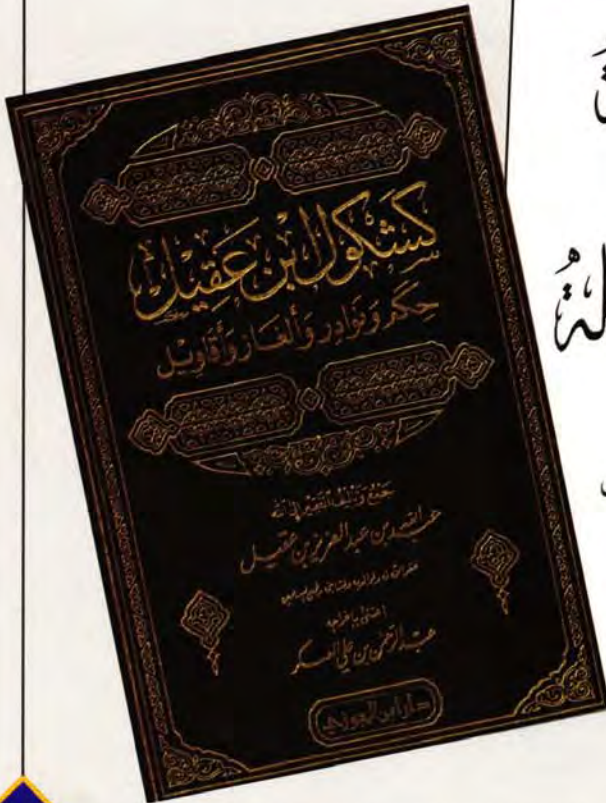 كشكول ابن عقيل
حِكَم وَنَوَادِر وَأَلغَاز وَأَقَاوِيل
جمع وترتيب الفقير إلى الله
عبد الله بن عبد العزيز بن عقيل
غفر الله له ولوالديه
اعتنى بإخراجه
عبد الرحمن بن علي العسكر
دار ابن الجوزي